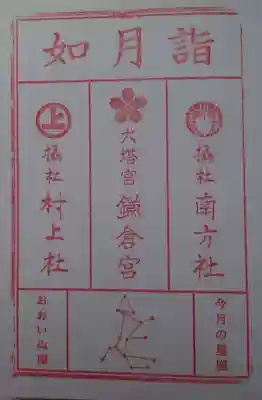 如月詣
摂社 南方社
大塔宮 鎌倉宮
上
摂社 村上社
今月の星座
おおいぬ座